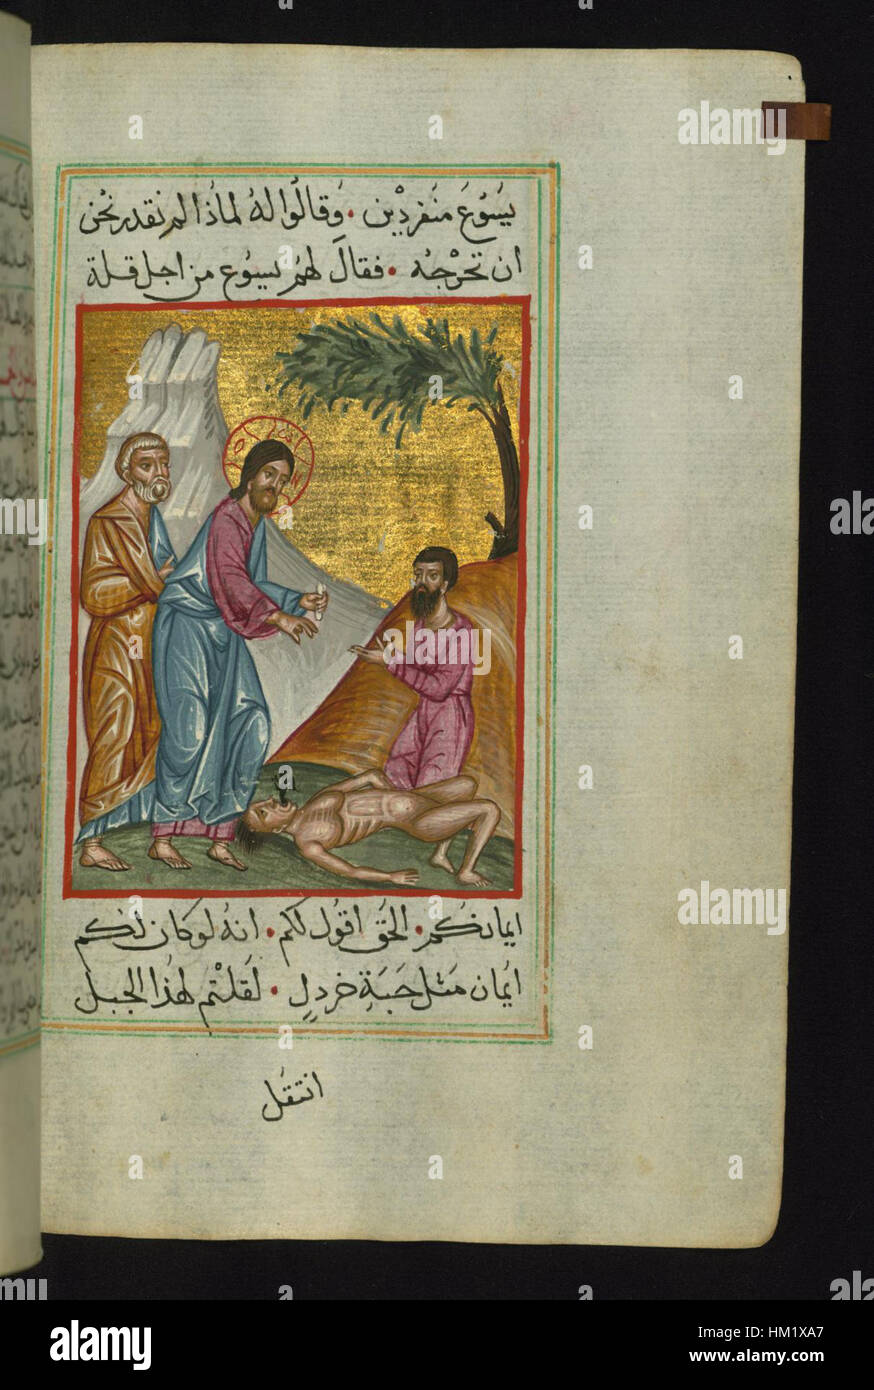 يسَوُعَ منفردْين • وَقالوُا لهُ لماذا لم نقدر نحْن
ان تخرْجهُ • فقالَ لهُم يسوُع من اجل قلة
ايمانكُم • الحَق اقوُل لكم • انهُ لو كان لكُم
ايمُان مَثل حَبَةِ خردلٍ • لقلتْم لهذا الجبل
انتقُل
a
alamy
alamy
Image ID: HM1XA7
www.alamy.com